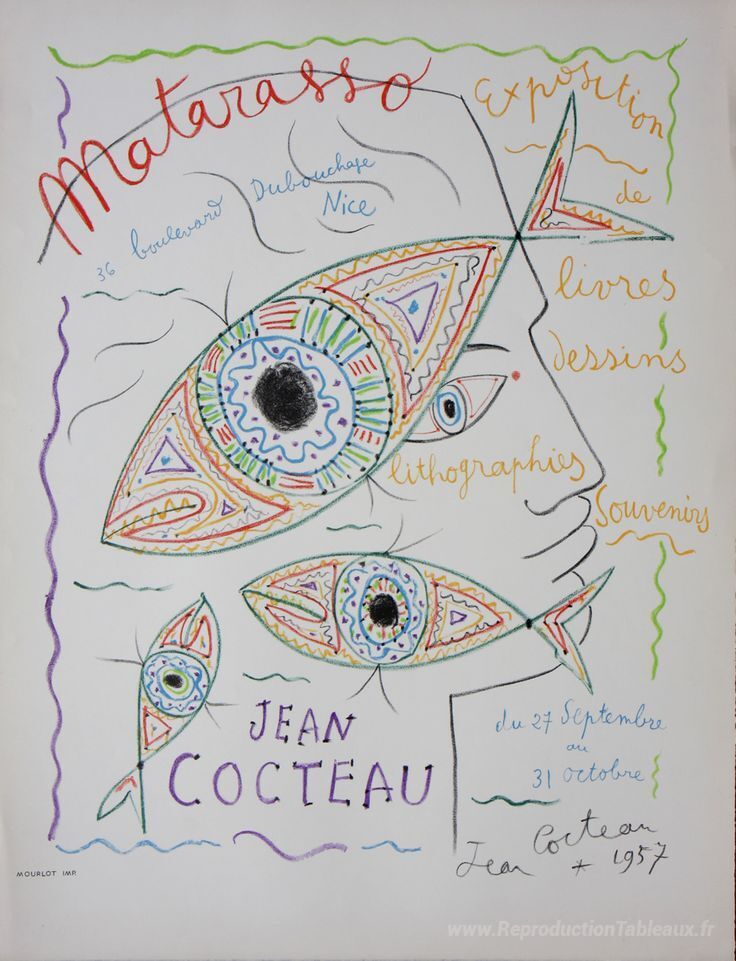 Matarasso
36 boulevard Dubouchage
Nice
Exposition
de
livres
dessins
lithographies
Souvenirs
JEAN
COCTEAU
du 27 Septembre
au
31 octobre
Jean Cocteau
* 1957
MOURLOT IMP.
www.ReproductionTableaux.fr